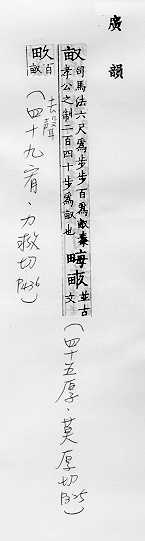 廣韻
畝司馬法六尺爲步步百爲畝秦
孝公之制二百四十步爲畝也畮畞並古
文
(四十五厚.莫厚切
P325)
畂百
畝
去聲
(四十九宥.力救切
P436)